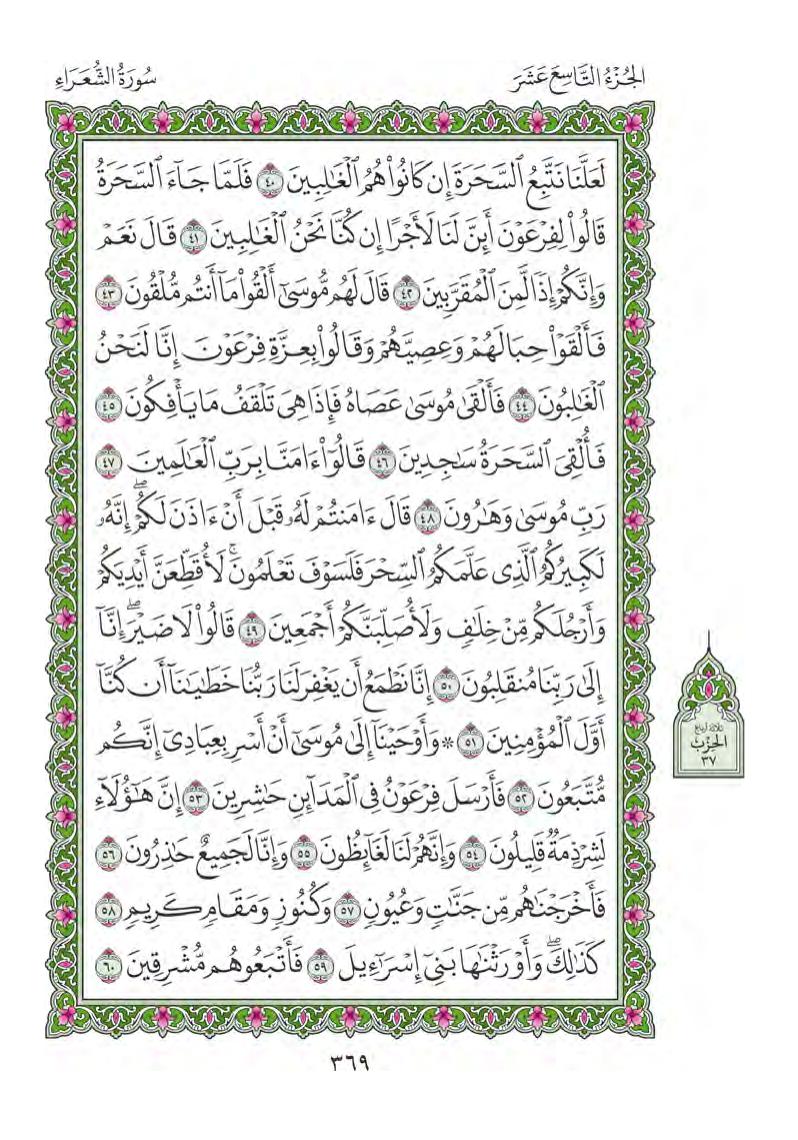 الجُزْءُ التَّاسِعَ عَشَرَ
سُورَةُ الشُّعَرَاءِ
لَعَلَّنَا نَتَّبِعُ ٱلسَّحَرَةَ إِن كَانُوا۟ هُمُ ٱلْغَـٰلِبِينَ ٤٠ فَلَمَّا جَآءَ ٱلسَّحَرَةُ
قَالُوا۟ لِفِرْعَوْنَ أَئِنَّ لَنَا لَأَجْرًا إِن كُنَّا نَحْنُ ٱلْغَـٰلِبِينَ ٤١ قَالَ نَعَمْ
وَإِنَّكُمْ إِذًا لَّمِنَ ٱلْمُقَرَّبِينَ ٤٢ قَالَ لَهُم مُّوسَىٰٓ أَلْقُوا۟ مَآ أَنتُم مُّلْقُونَ ٤٣
فَأَلْقَوْا۟ حِبَالَهُمْ وَعِصِيَّهُمْ وَقَالُوا۟ بِعِزَّةِ فِرْعَوْنَ إِنَّا لَنَحْنُ
ٱلْغَـٰلِبُونَ ٤٤ فَأَلْقَىٰ مُوسَىٰ عَصَاهُ فَإِذَا هِىَ تَلْقَفُ مَا يَأْفِكُونَ ٤٥
فَأُلْقِىَ ٱلسَّحَرَةُ سَـٰجِدِينَ ٤٦ قَالُوٓا۟ ءَامَنَّا بِرَبِّ ٱلْعَـٰلَمِينَ ٤٧
رَبِّ مُوسَىٰ وَهَـٰرُونَ ٤٨ قَالَ ءَامَنتُمْ لَهُۥ قَبْلَ أَنْ ءَاذَنَ لَكُمْ ۖ إِنَّهُۥ
لَكَبِيرُكُمُ ٱلَّذِى عَلَّمَكُمُ ٱلسِّحْرَ فَلَسَوْفَ تَعْلَمُونَ ۚ لَأُقَطِّعَنَّ أَيْدِيَكُمْ
وَأَرْجُلَكُم مِّنْ خِلَـٰفٍ وَلَأُصَلِّبَنَّكُمْ أَجْمَعِينَ ٤٩ قَالُوا۟ لَا ضَيْرَ ۖ إِنَّآ
إِلَىٰ رَبِّنَا مُنقَلِبُونَ ٥٠ إِنَّا نَطْمَعُ أَن يَغْفِرَ لَنَا رَبُّنَا خَطَـٰيَـٰنَآ أَن كُنَّآ
أَوَّلَ ٱلْمُؤْمِنِينَ ٥١ ۞ وَأَوْحَيْنَآ إِلَىٰ مُوسَىٰٓ أَنْ أَسْرِ بِعِبَادِىٓ إِنَّكُم
مُّتَّبَعُونَ ٥٢ فَأَرْسَلَ فِرْعَوْنُ فِى ٱلْمَدَآئِنِ حَـٰشِرِينَ ٥٣ إِنَّ هَـٰٓؤُلَآءِ
لَشِرْذِمَةٌ قَلِيلُونَ ٥٤ وَإِنَّهُمْ لَنَا لَغَآئِظُونَ ٥٥ وَإِنَّا لَجَمِيعٌ حَـٰذِرُونَ ٥٦
فَأَخْرَجْنَـٰهُم مِّن جَنَّـٰتٍ وَعُيُونٍ ٥٧ وَكُنُوزٍ وَمَقَامٍ كَرِيمٍ ٥٨
كَذَٰلِكَ ۖ وَأَوْرَثْنَـٰهَا بَنِىٓ إِسْرَٰٓءِيلَ ٥٩ فَأَتْبَعُوهُم مُّشْرِقِينَ ٦٠
ثلاثة أرباع
الحِزْب
٣٧
٣٦٩